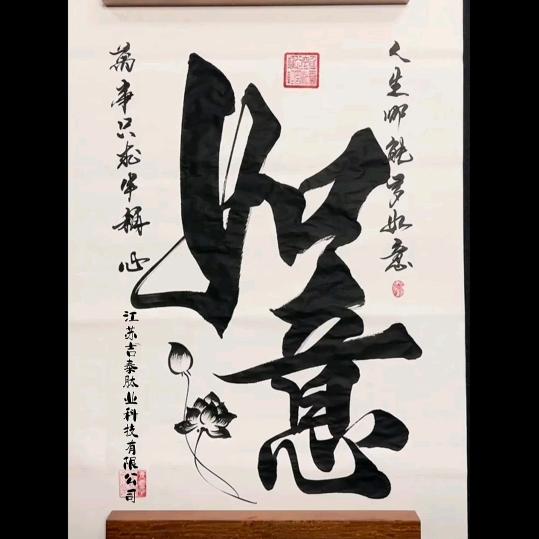 人生哪能多如意
如意
萬事只求半稱心
江苏吉泰肽业科技有限公司